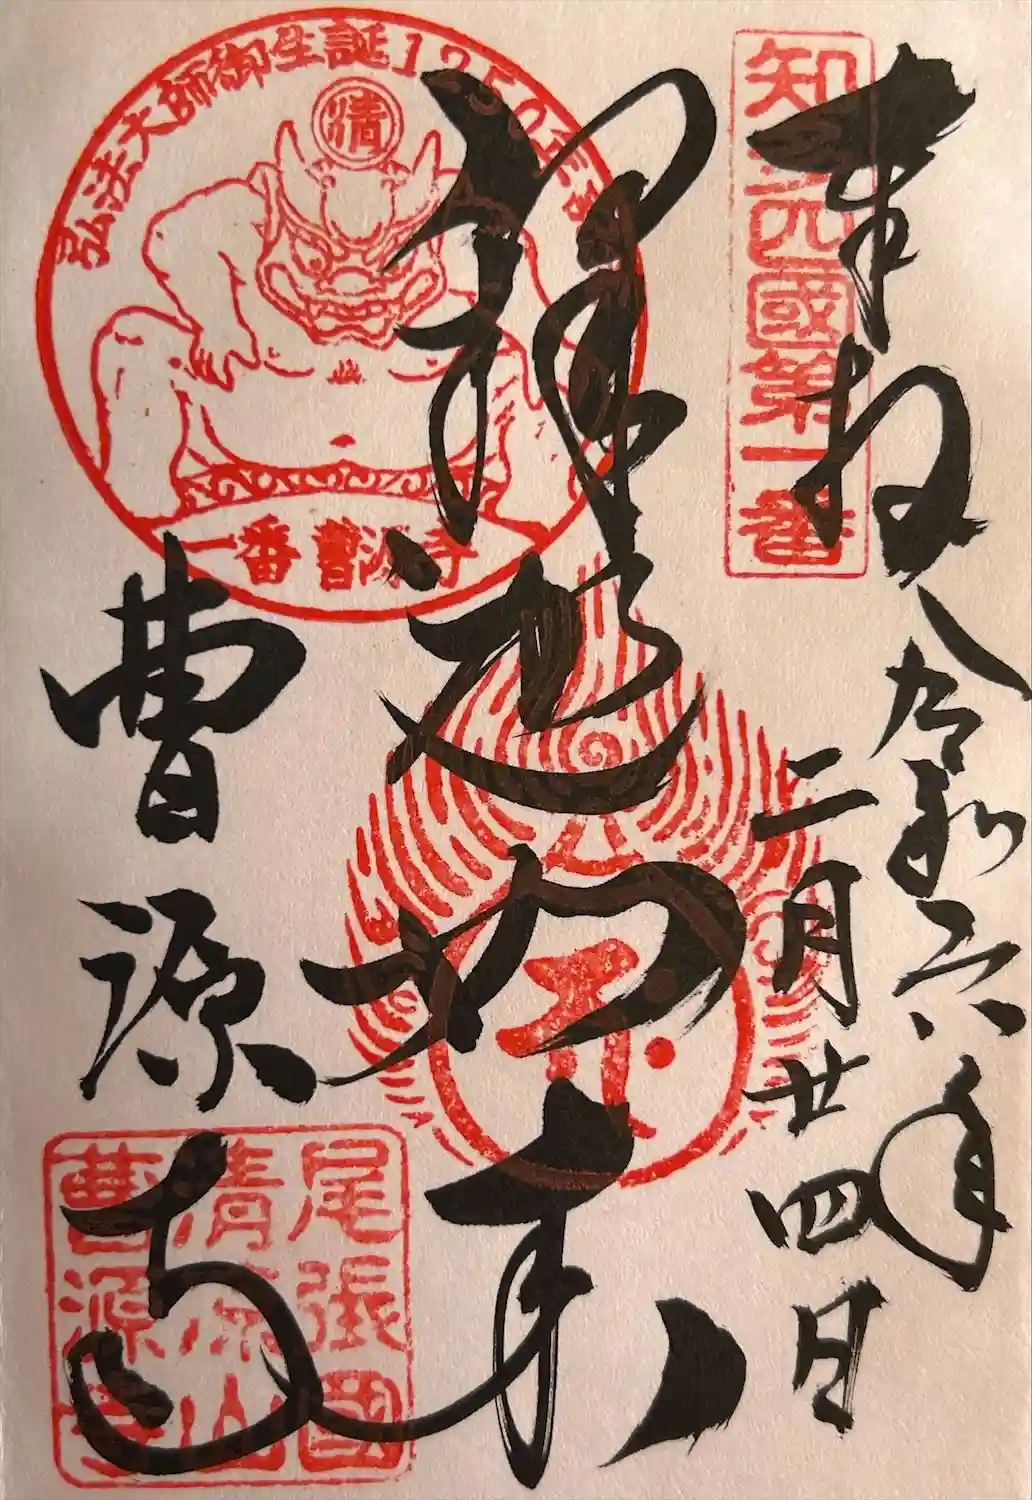 奉拝
令和六年
二月廿四日
知多四國第一番
釋迦如来
弘法大師御生誕1250年
清
一番 曹源寺
曹源寺
尾張國
清涼山
曹源寺